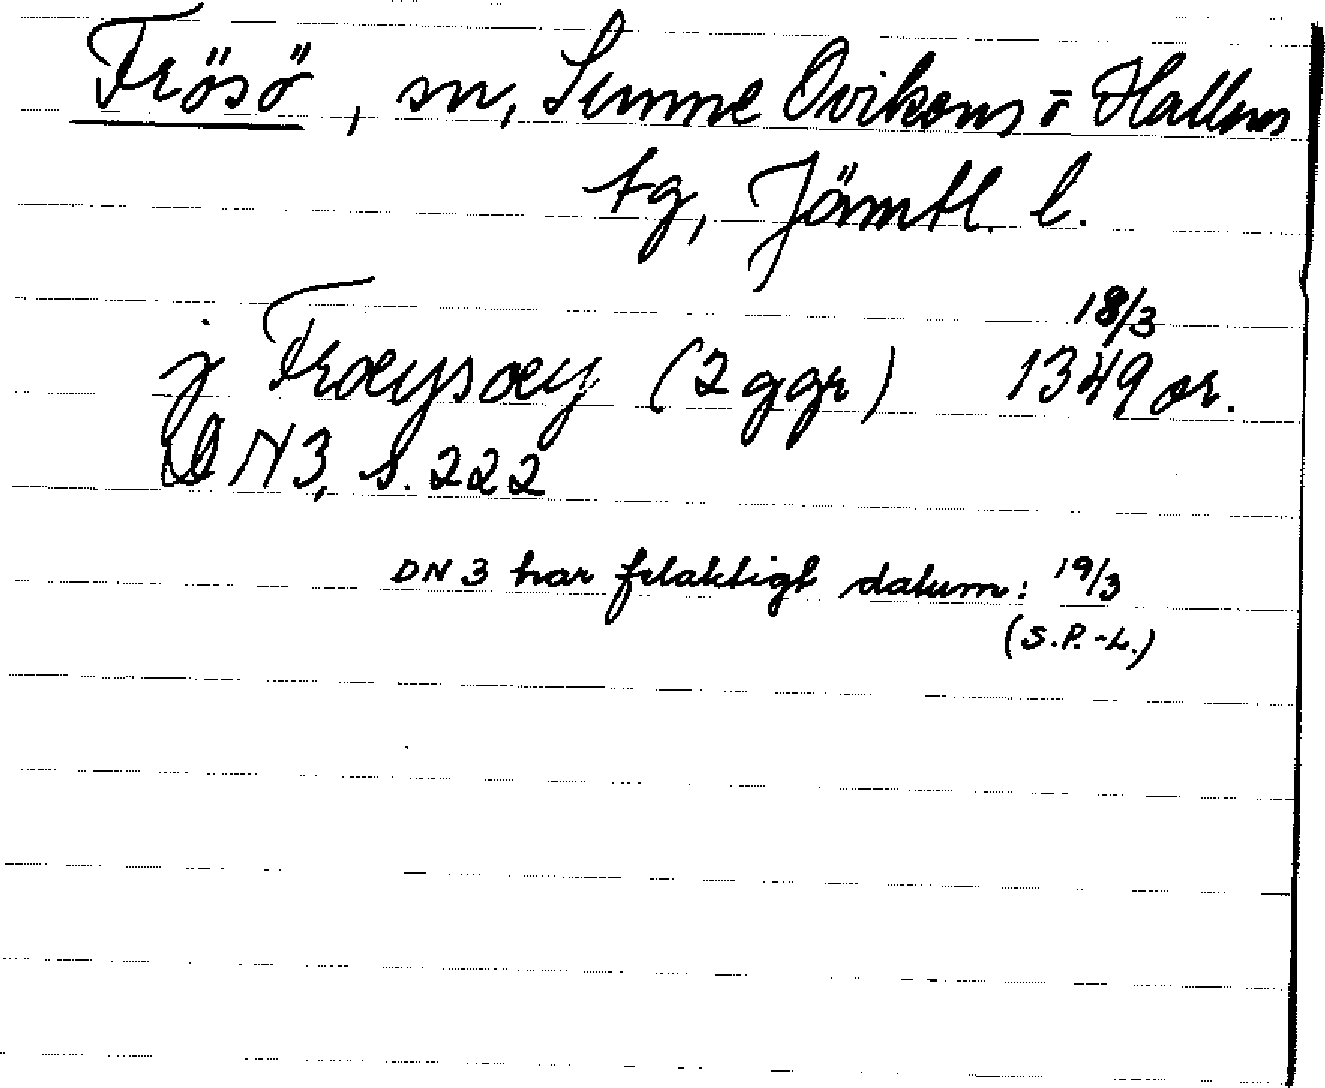 Frösö, sn, Sunne Ovikens o Hallens
tg, Jämtl. l.
j Frœysœy (2 ggr) 18/3 1349 or.
DN 3, s. 222
DN 3 har felaktigt datum: 19/3
(S.P.-L.)